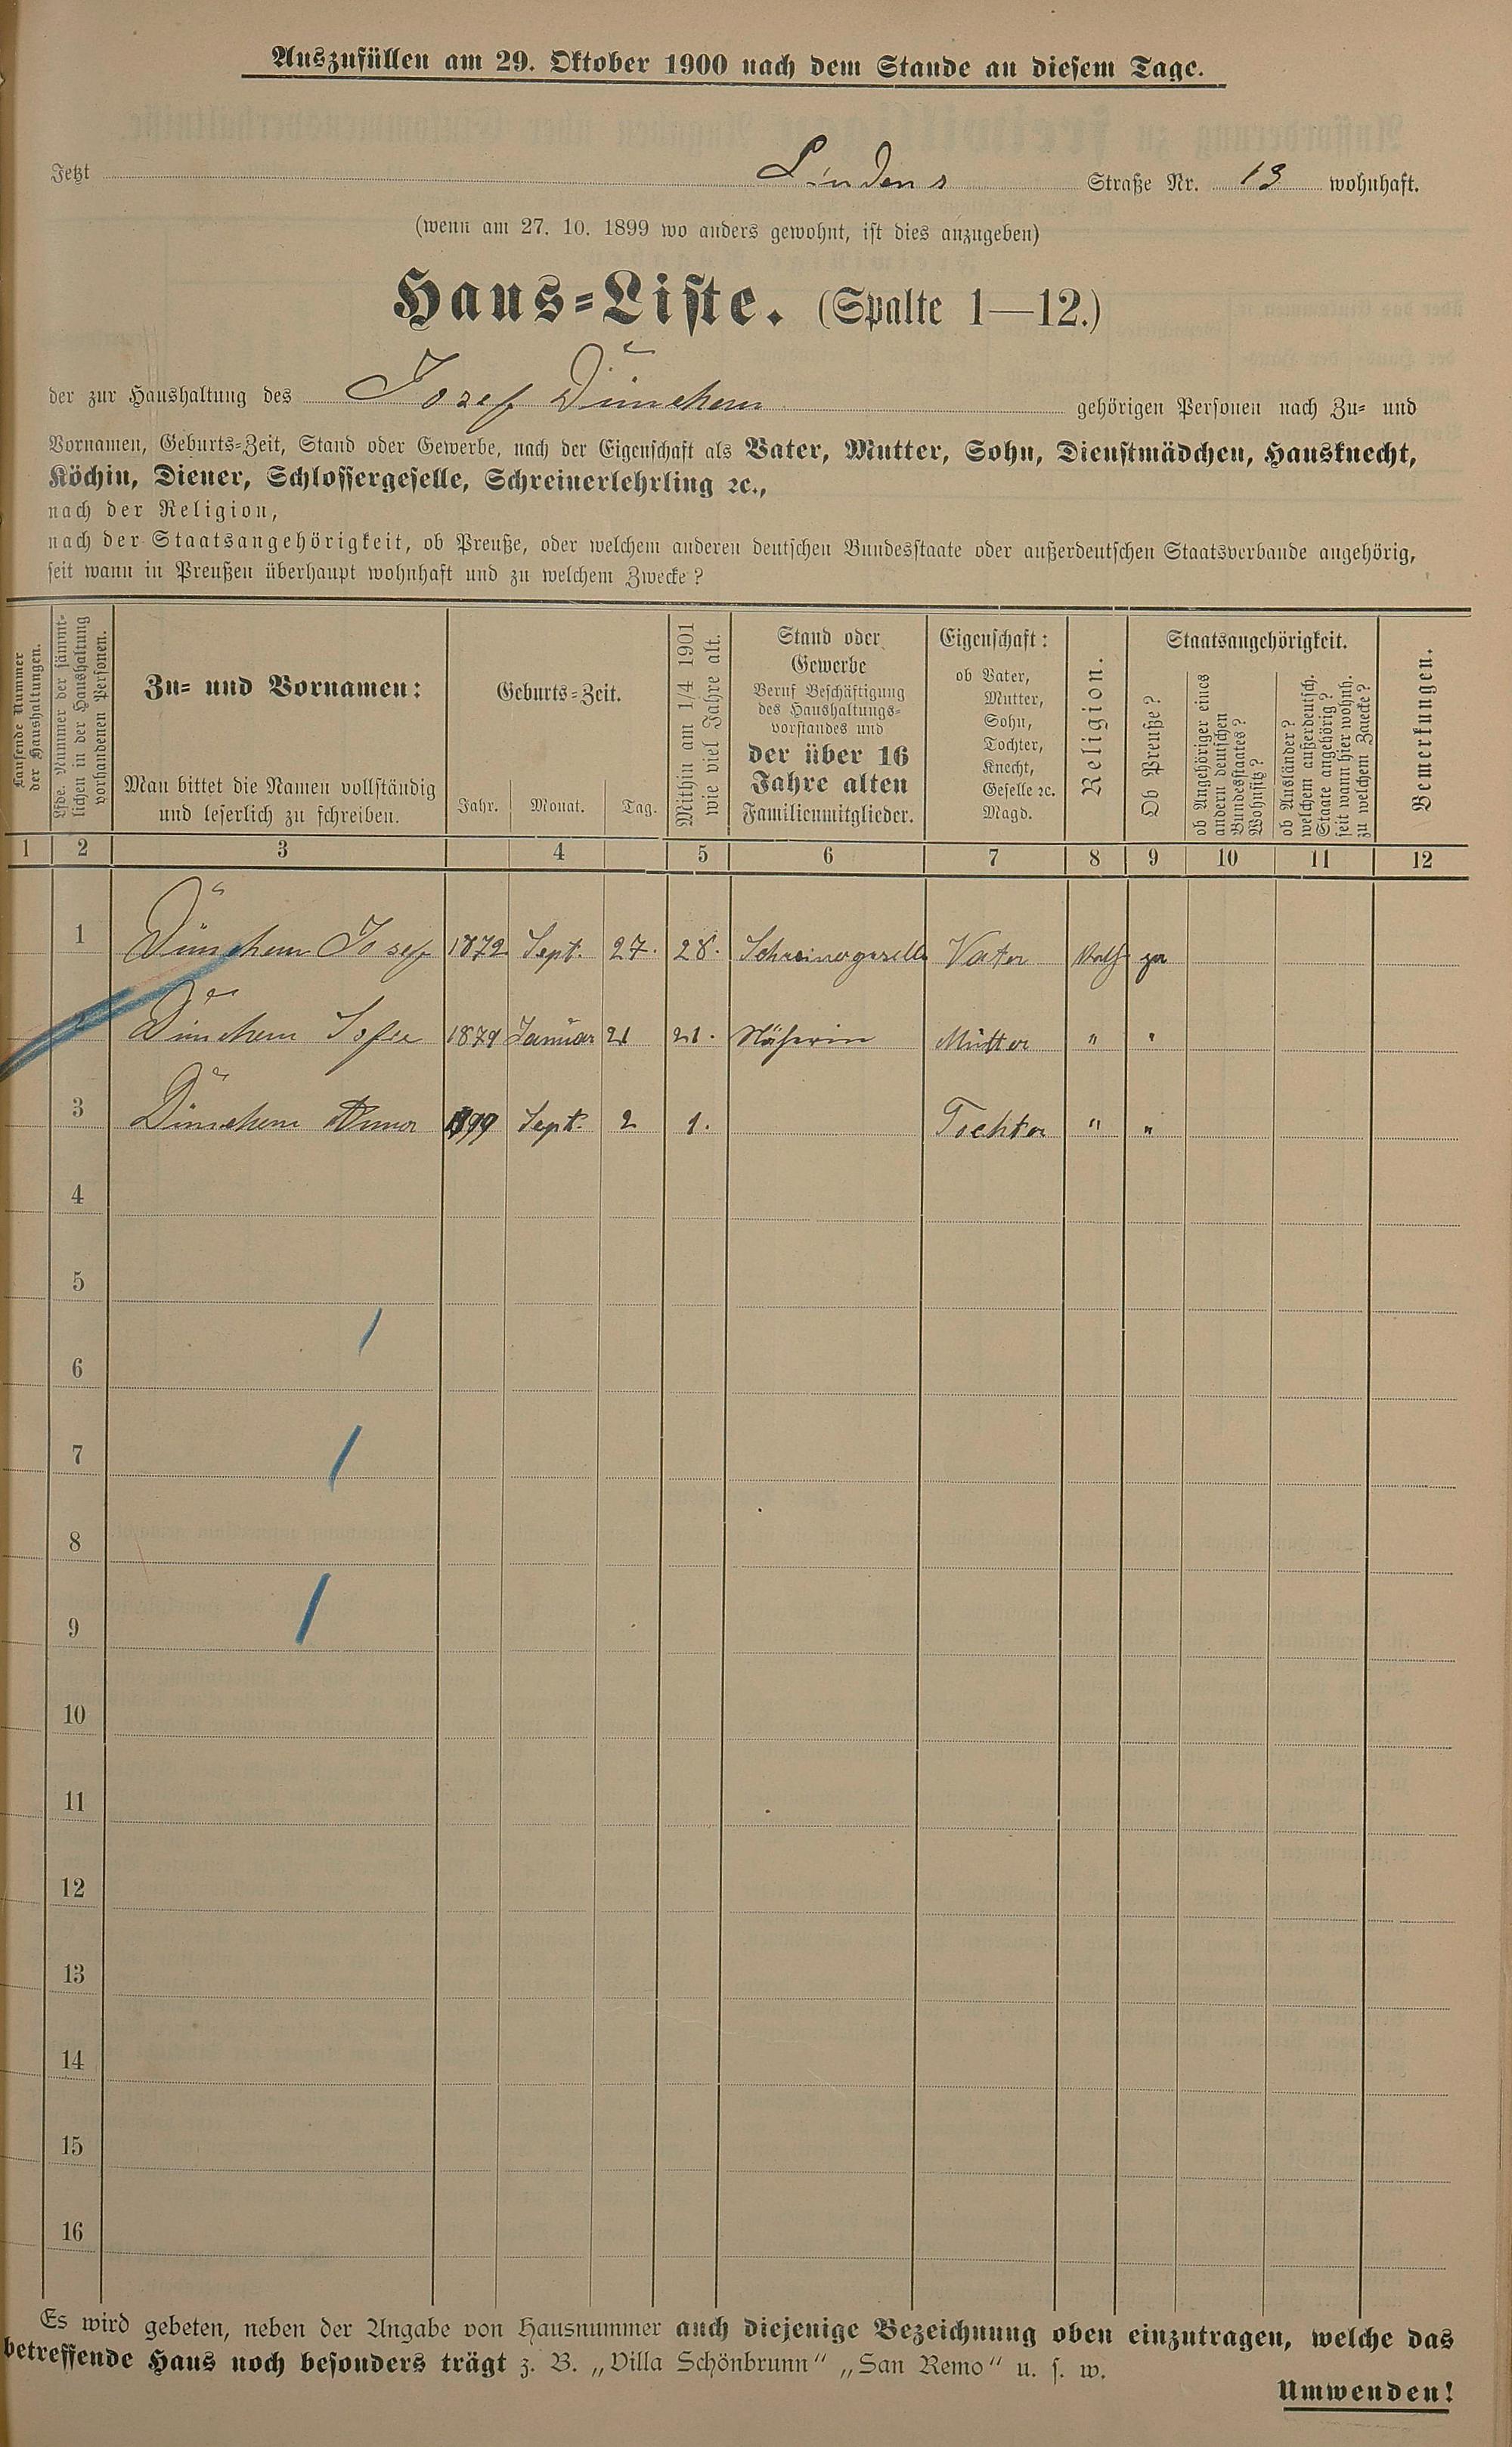 Auszufüllen am 29. Oktober 1900 nach dem Stande an diesem Tage.
Jetzt Lindens Straße Nr. 13 wohnhaft.
(wenn am 27. 10. 1899 wo anders gewohnt, ist dies anzugeben)
Haus=Liste. (Spalte 1—12.)
der zur Haushaltung des Josef Dünchem gehörigen Personen nach Zu= und
Vornamen, Geburts=Zeit, Stand oder Gewerbe, nach der Eigenschaft als Vater, Mutter, Sohn, Dienstmädchen, Hausknecht,
Köchin, Diener, Schlossergeselle, Schreinerlehrling ꝛc.,
nach der Religion,
nach der Staatsangehörigkeit, ob Preuße, oder welchem anderen deutschen Bundesstaate oder außerdeutschen Staatsverbande angehörig,
seit wann in Preußen überhaupt wohnhaft und zu welchem Zwecke?
Laufende Nummer
der Haushaltungen.
Lfde. Nummer der sämmt-
lichen in der Haushaltung
vorhandenen Personen.
Zu= und Vornamen:
Man bittet die Namen vollständig
und leserlich zu schreiben.
Geburts=Zeit.
Jahr. Monat. Tag.
Mithin am 1/4 1901
wie viel Jahre alt.
Stand oder
Gewerbe
Beruf Beschäftigung
des Haushaltungs=
vorstandes und
der über 16
Jahre alten
Familienmitglieder.
Eigenschaft:
ob Vater,
Mutter,
Sohn,
Tochter,
Knecht,
Geselle ꝛc.
Magd.
Religion.
Staatsangehörigkeit.
Ob Preuße?
ob Angehöriger eines
andern deutschen
Bundesstaates?
Wohnsitz?
ob Ausländer?
welchem außerdeutsch.
Staate angehörig?
seit wann hier wohnh.
zu welchem Zwecke?
Bemerkungen.
1 2 3 4 5 6 7 8 9 10 11 12
1 Dünchem Josef 1872 Sept. 27. 28. Schreinergeselle Vater Kath ja
2 Dünchem Sofie 1879 Januar 21 21. Näherin Mutter " "
3 Dünchem Anna 1899 Sept. 2 1. Tochter " "
4
5
6
7
8
9
10
11
12
13
14
15
16
Es wird gebeten, neben der Angabe von Hausnummer auch diejenige Bezeichnung oben einzutragen, welche das
betreffende Haus noch besonders trägt z. B. „Villa Schönbrunn" „San Remo" u. s. w.
Umwenden!